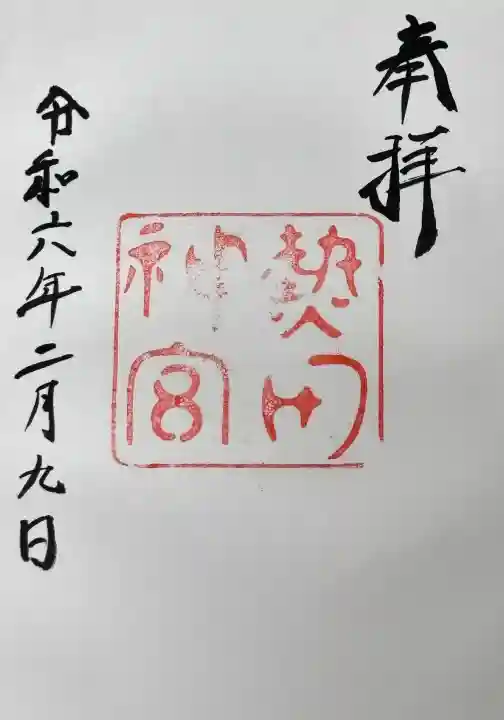 奉拝
熱田
神宮
令和六年二月九日